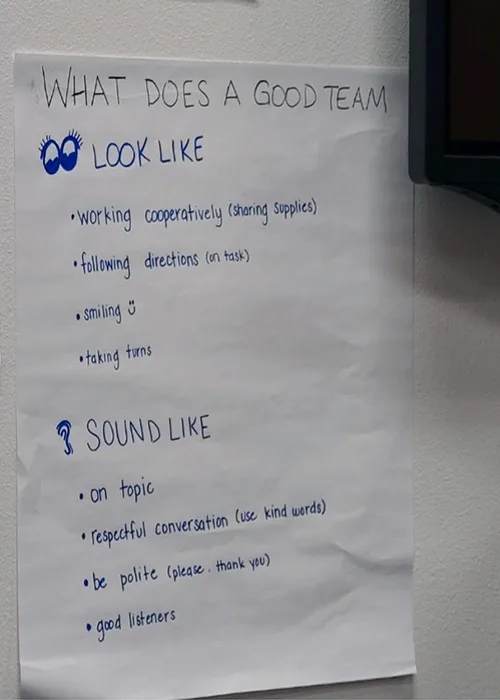 WHAT DOES A GOOD TEAM
LOOK LIKE
• working cooperatively (sharing supplies)
• following directions (on task)
• smiling
• taking turns
SOUND LIKE
• on topic
• respectful conversation (use kind words)
• be polite (please, thank you)
• good listeners